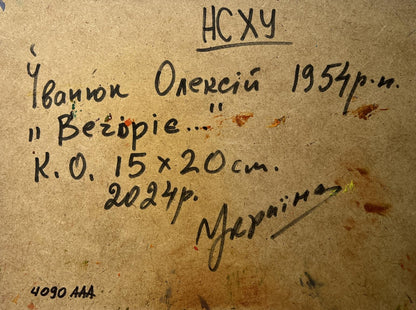 НСХУ
Іванюк Олексій 1954р.н.
"Вечоріє..."
К.О. 15 x 20см.
2024р.
Україна
4090 AAA